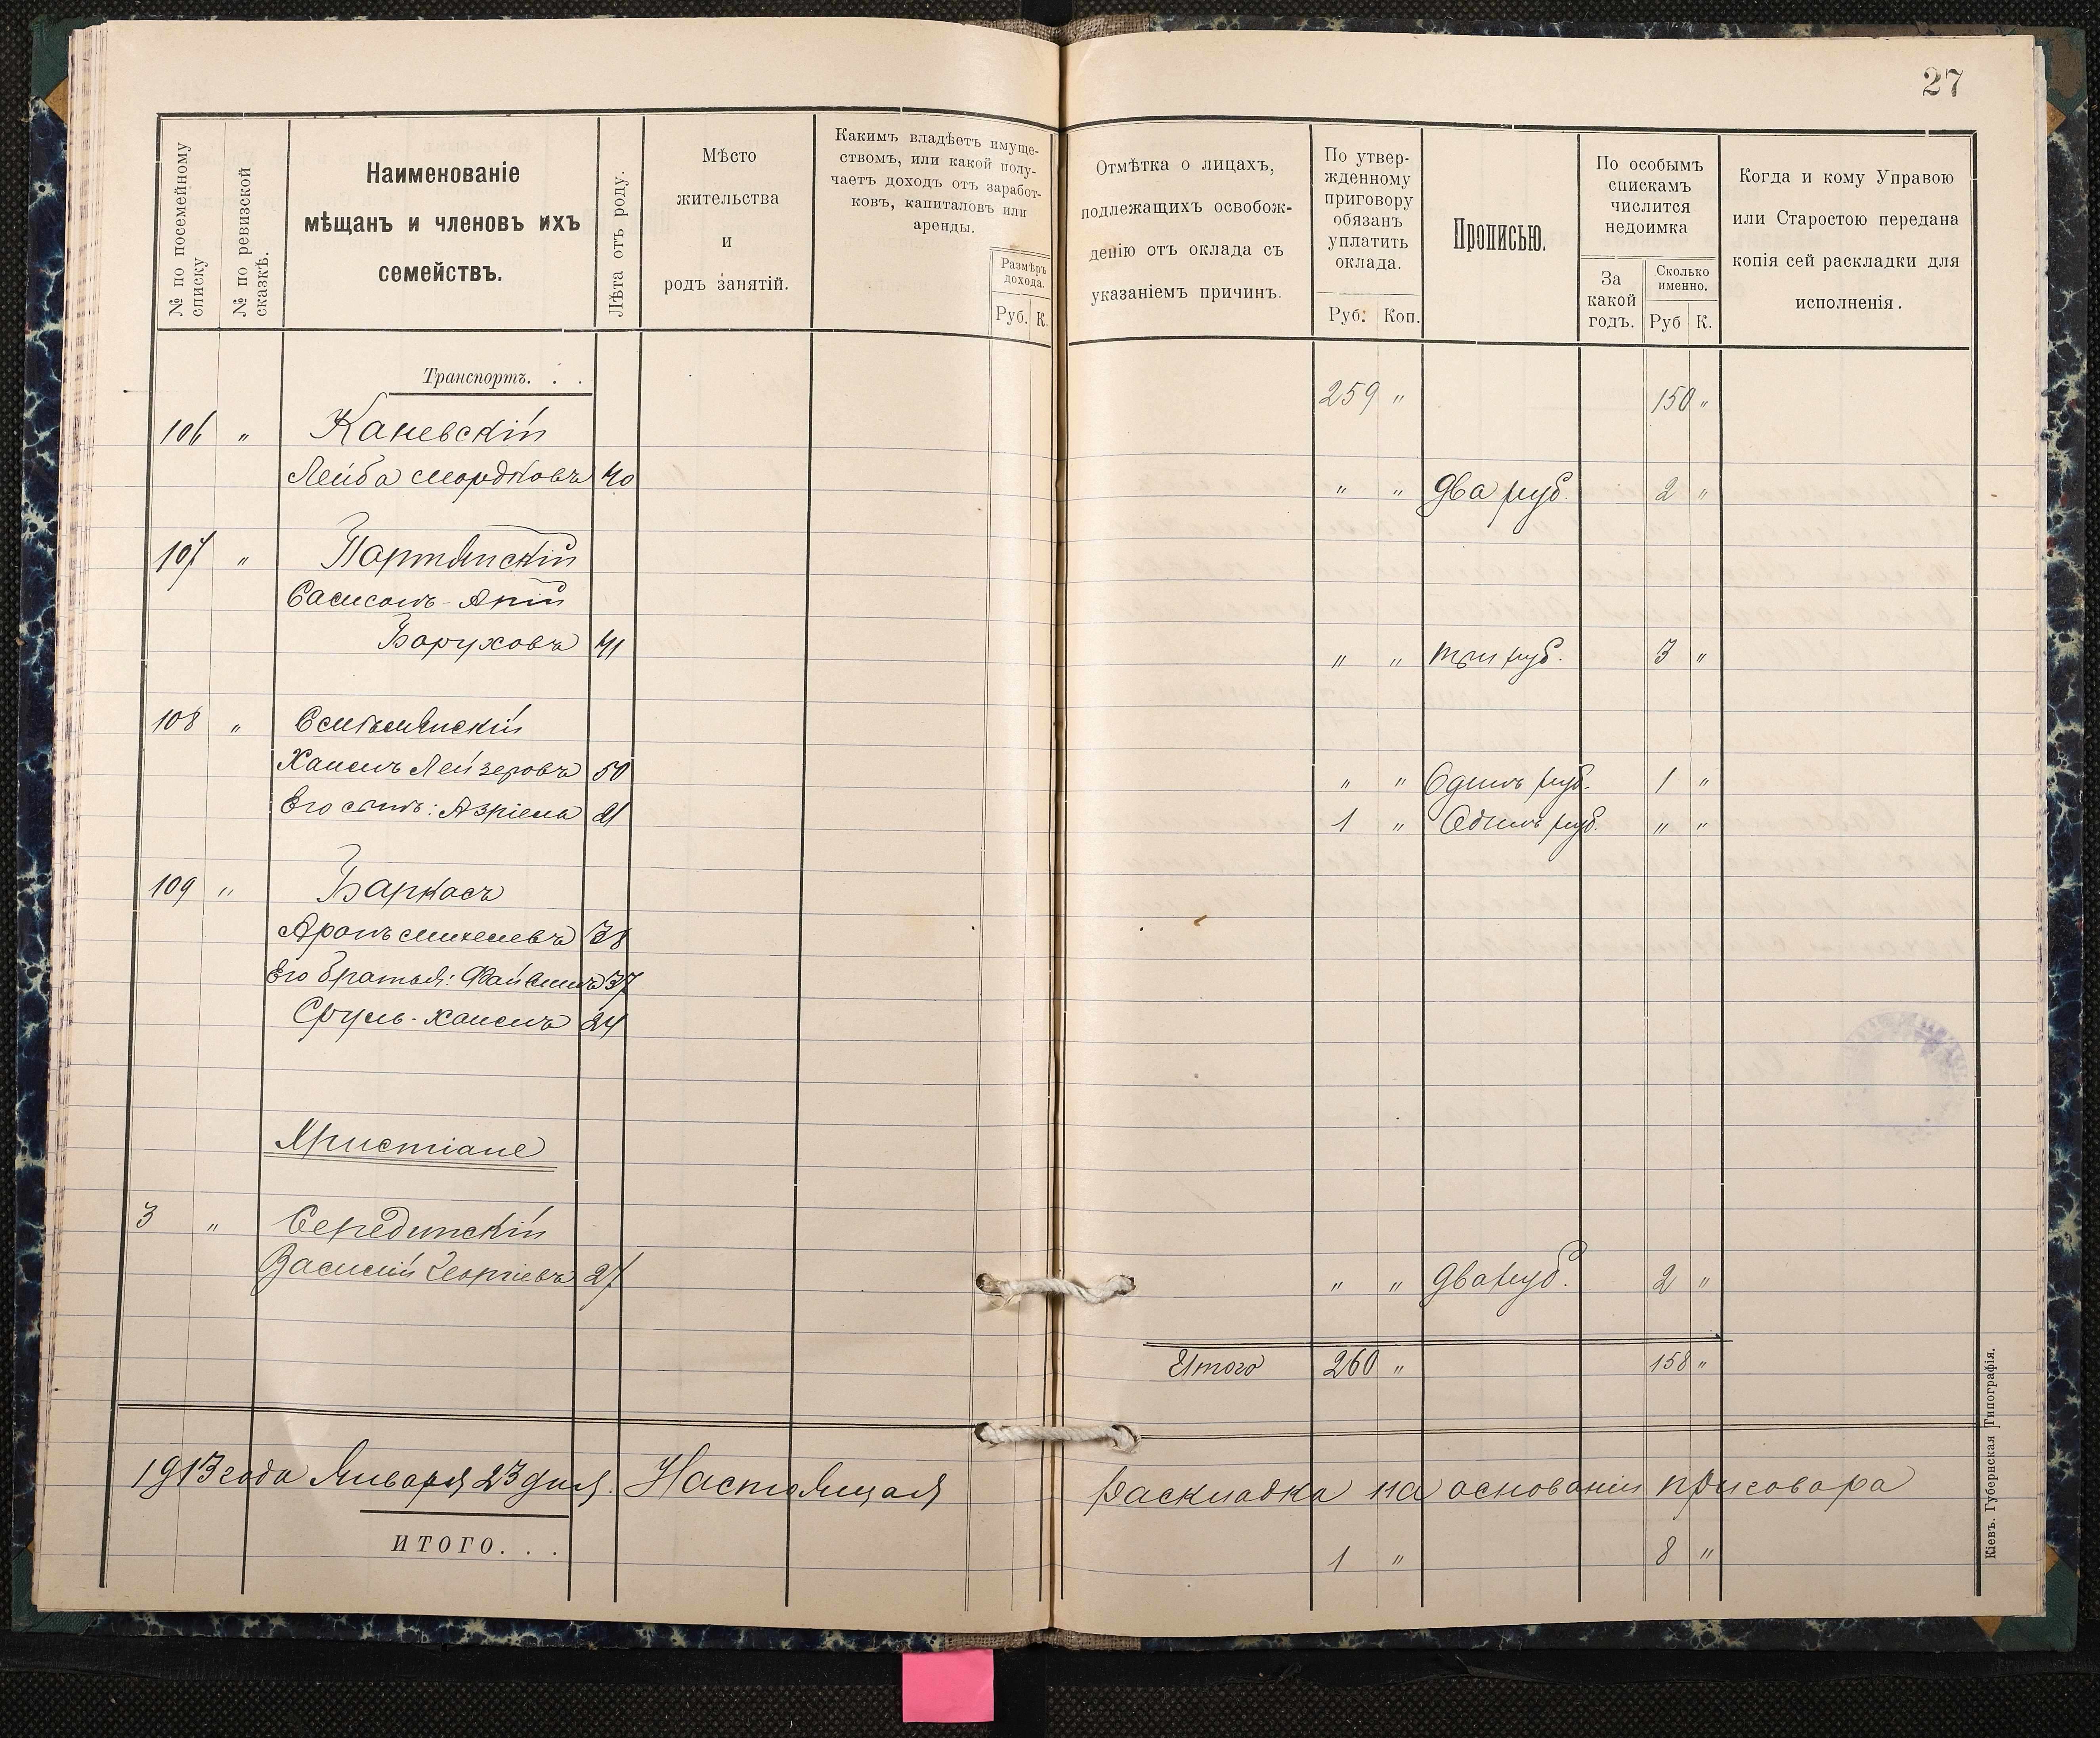 27
№ по посемейному списку
№ по ревизской сказкѣ.
Наименованіе
мѣщанъ и членовъ ихъ
семействъ.
Лѣта отъ роду.
Мѣсто
жительства
и
родъ занятій.
Какимъ владѣетъ имуще-
ствомъ, или какой полу-
чаетъ доходъ отъ заработ-
ковъ, капиталовъ или
аренды.
Размѣръ
дохода.
Руб. К.
Отмѣтка о лицахъ,
подлежащихъ освобож-
денію отъ оклада съ
указаніемъ причинъ.
По утвер-
жденному
приговору
обязанъ
уплатить
оклада.
Руб. Коп.
Прописью.
По особымъ
спискамъ
числится
недоимка
За
какой
годъ.
Сколько
именно.
Руб К.
Когда и кому Управою
или Старостою передана
копія сей раскладки для
исполненія.
Транспортъ. . . 259 " 150 "
106 " Каневскій
Лейба Мордковъ 40 " " Два руб. 2 "
107 " Портянскій
Самсонъ-Арій
Боруховъ 41 " " три руб. 3 "
108 " Смѣлянскій
Хаимъ Лейзеровъ 50 " " Одинъ руб. 1 "
Его сынъ: Азріель 21 1 " Одинъ руб. " "
109 " Баркасъ
Аронъ Михелевъ 38
Его братья: Файвишъ 37
Сруль-Хаимъ 24
Христіане
3 " Серединскій
Василій Георгіевъ 27 " " Два руб. 2 "
Итого 260 " 158 "
1913 года Января 23 дня. Настоящая раскладка на основаніи приговора
ИТОГО. . . 1 " 8 "
Кіевъ. Губернская Типографія.